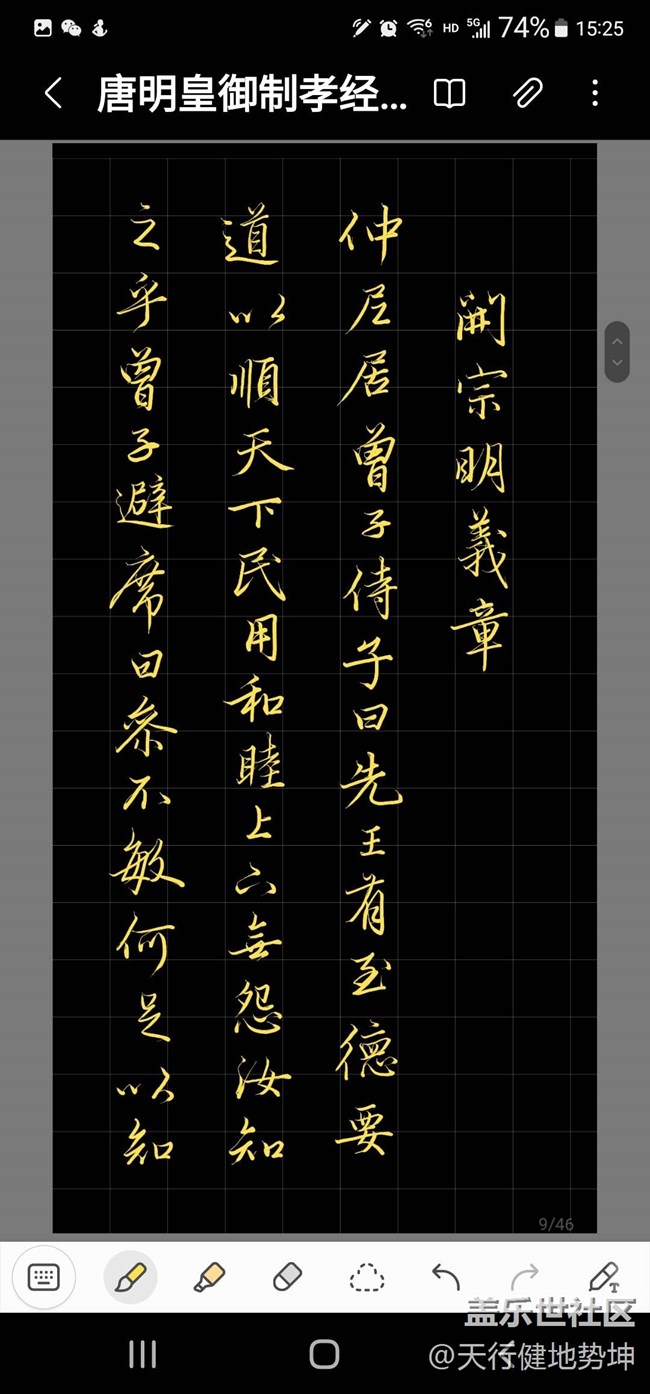 HD 5G 74% 15:25
唐明皇御制孝经...
開宗明義章
仲尼居曾子侍子曰先王有至德要
道以順天下民用和睦上下無怨汝知
之乎曾子避席曰參不敏何足以知
9/46
盖乐世社区
@天行健地势坤